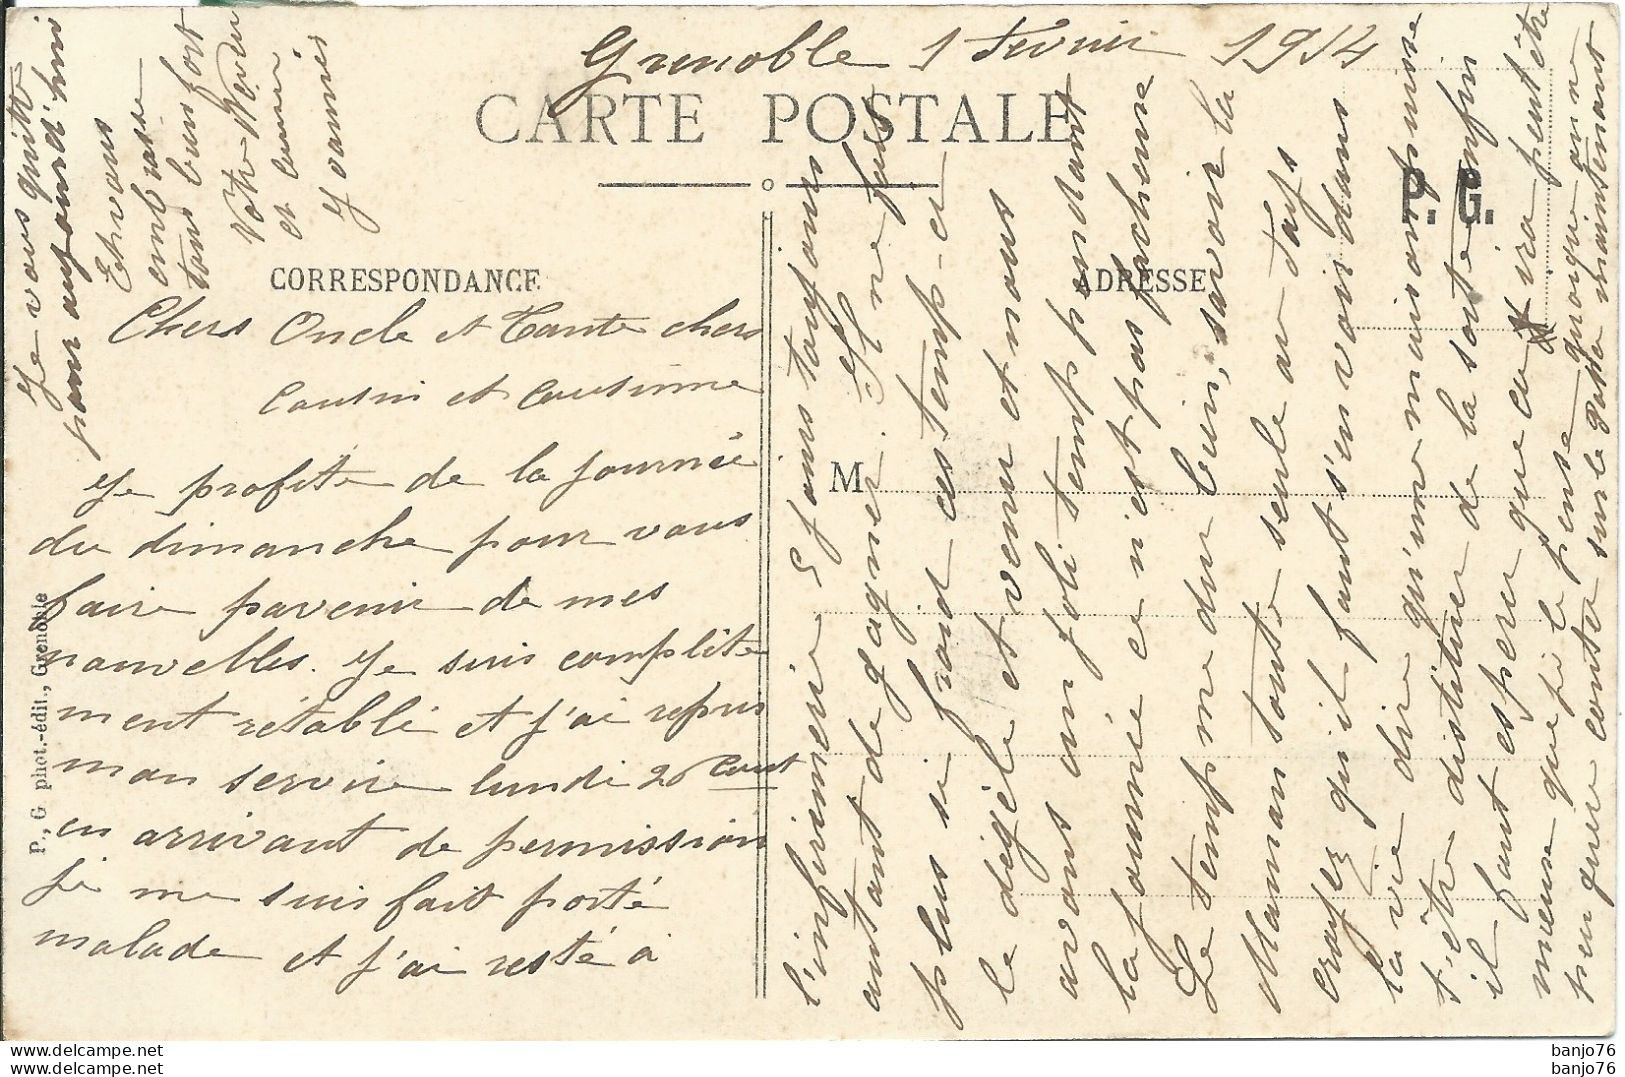 Grenoble 1 Fevrier 1914
CARTE POSTALE
P. G.
CORRESPONDANCE
ADRESSE
M
P., G phot.-édit., Grenoble
Chers Oncle et Tante chers
Cousin et Cousinne
Je profite de la journée
du dimanche pour vous
faire parvenir de mes
nouvelles. Je suis complète
ment rétabli et j'ai repris
mon service lundi 26 Court
en arrivant de permission
je me suis fait porté
malade et j'ai resté à
l'infirmerie 5 jours toujours
autant de gagner. Il ne fait
plus si froid ces temp-ci
le dégèle et venu et nous
avons un joli temp pendant
la journée ce n'est pas facheux
Le temp me dur bien, savoir la
Maman toute seule au Pays
croyez qu'il faut s'en voir dans
la vie dire qu'une maison puisse
t'être distituer de la sorte enfin
il faut esperer que ca ira peut être
mieux que je le pense quoique on ne
peu guere conter sur le gosse maintenant
Je vous quitte
pour aujourd'hui
En vous
embrasse
tous bien fort
Votre Neveu
et Cousin
Joannès
banjo76
banjo76